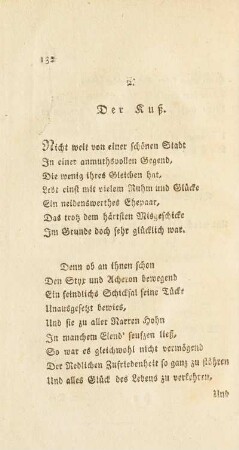 132
2.
Der Kuß.
Nicht weit von einer schönen Stadt
In einer anmuthsvollen Gegend,
Die wenig ihres Gleichen hat,
Lebt einst mit vielem Ruhm und Glücke
Ein neidenswerthes Ehepaar,
Das trotz dem härtsten Misgeschicke
Im Grunde doch sehr glücklich war.
Denn ob an ihnen schon
Den Styx und Acheron bewegend
Ein feindlichs Schicksal seine Tücke
Unausgesetzt bewies,
Und sie zu aller Narren Hohn
In manchem Elend' seufzen ließ,
So war es gleichwohl nicht vermögend
Der Redlichen Zufriedenheit so ganz zu stöhren
Und alles Glück des Lebens zu verkehren,
Und